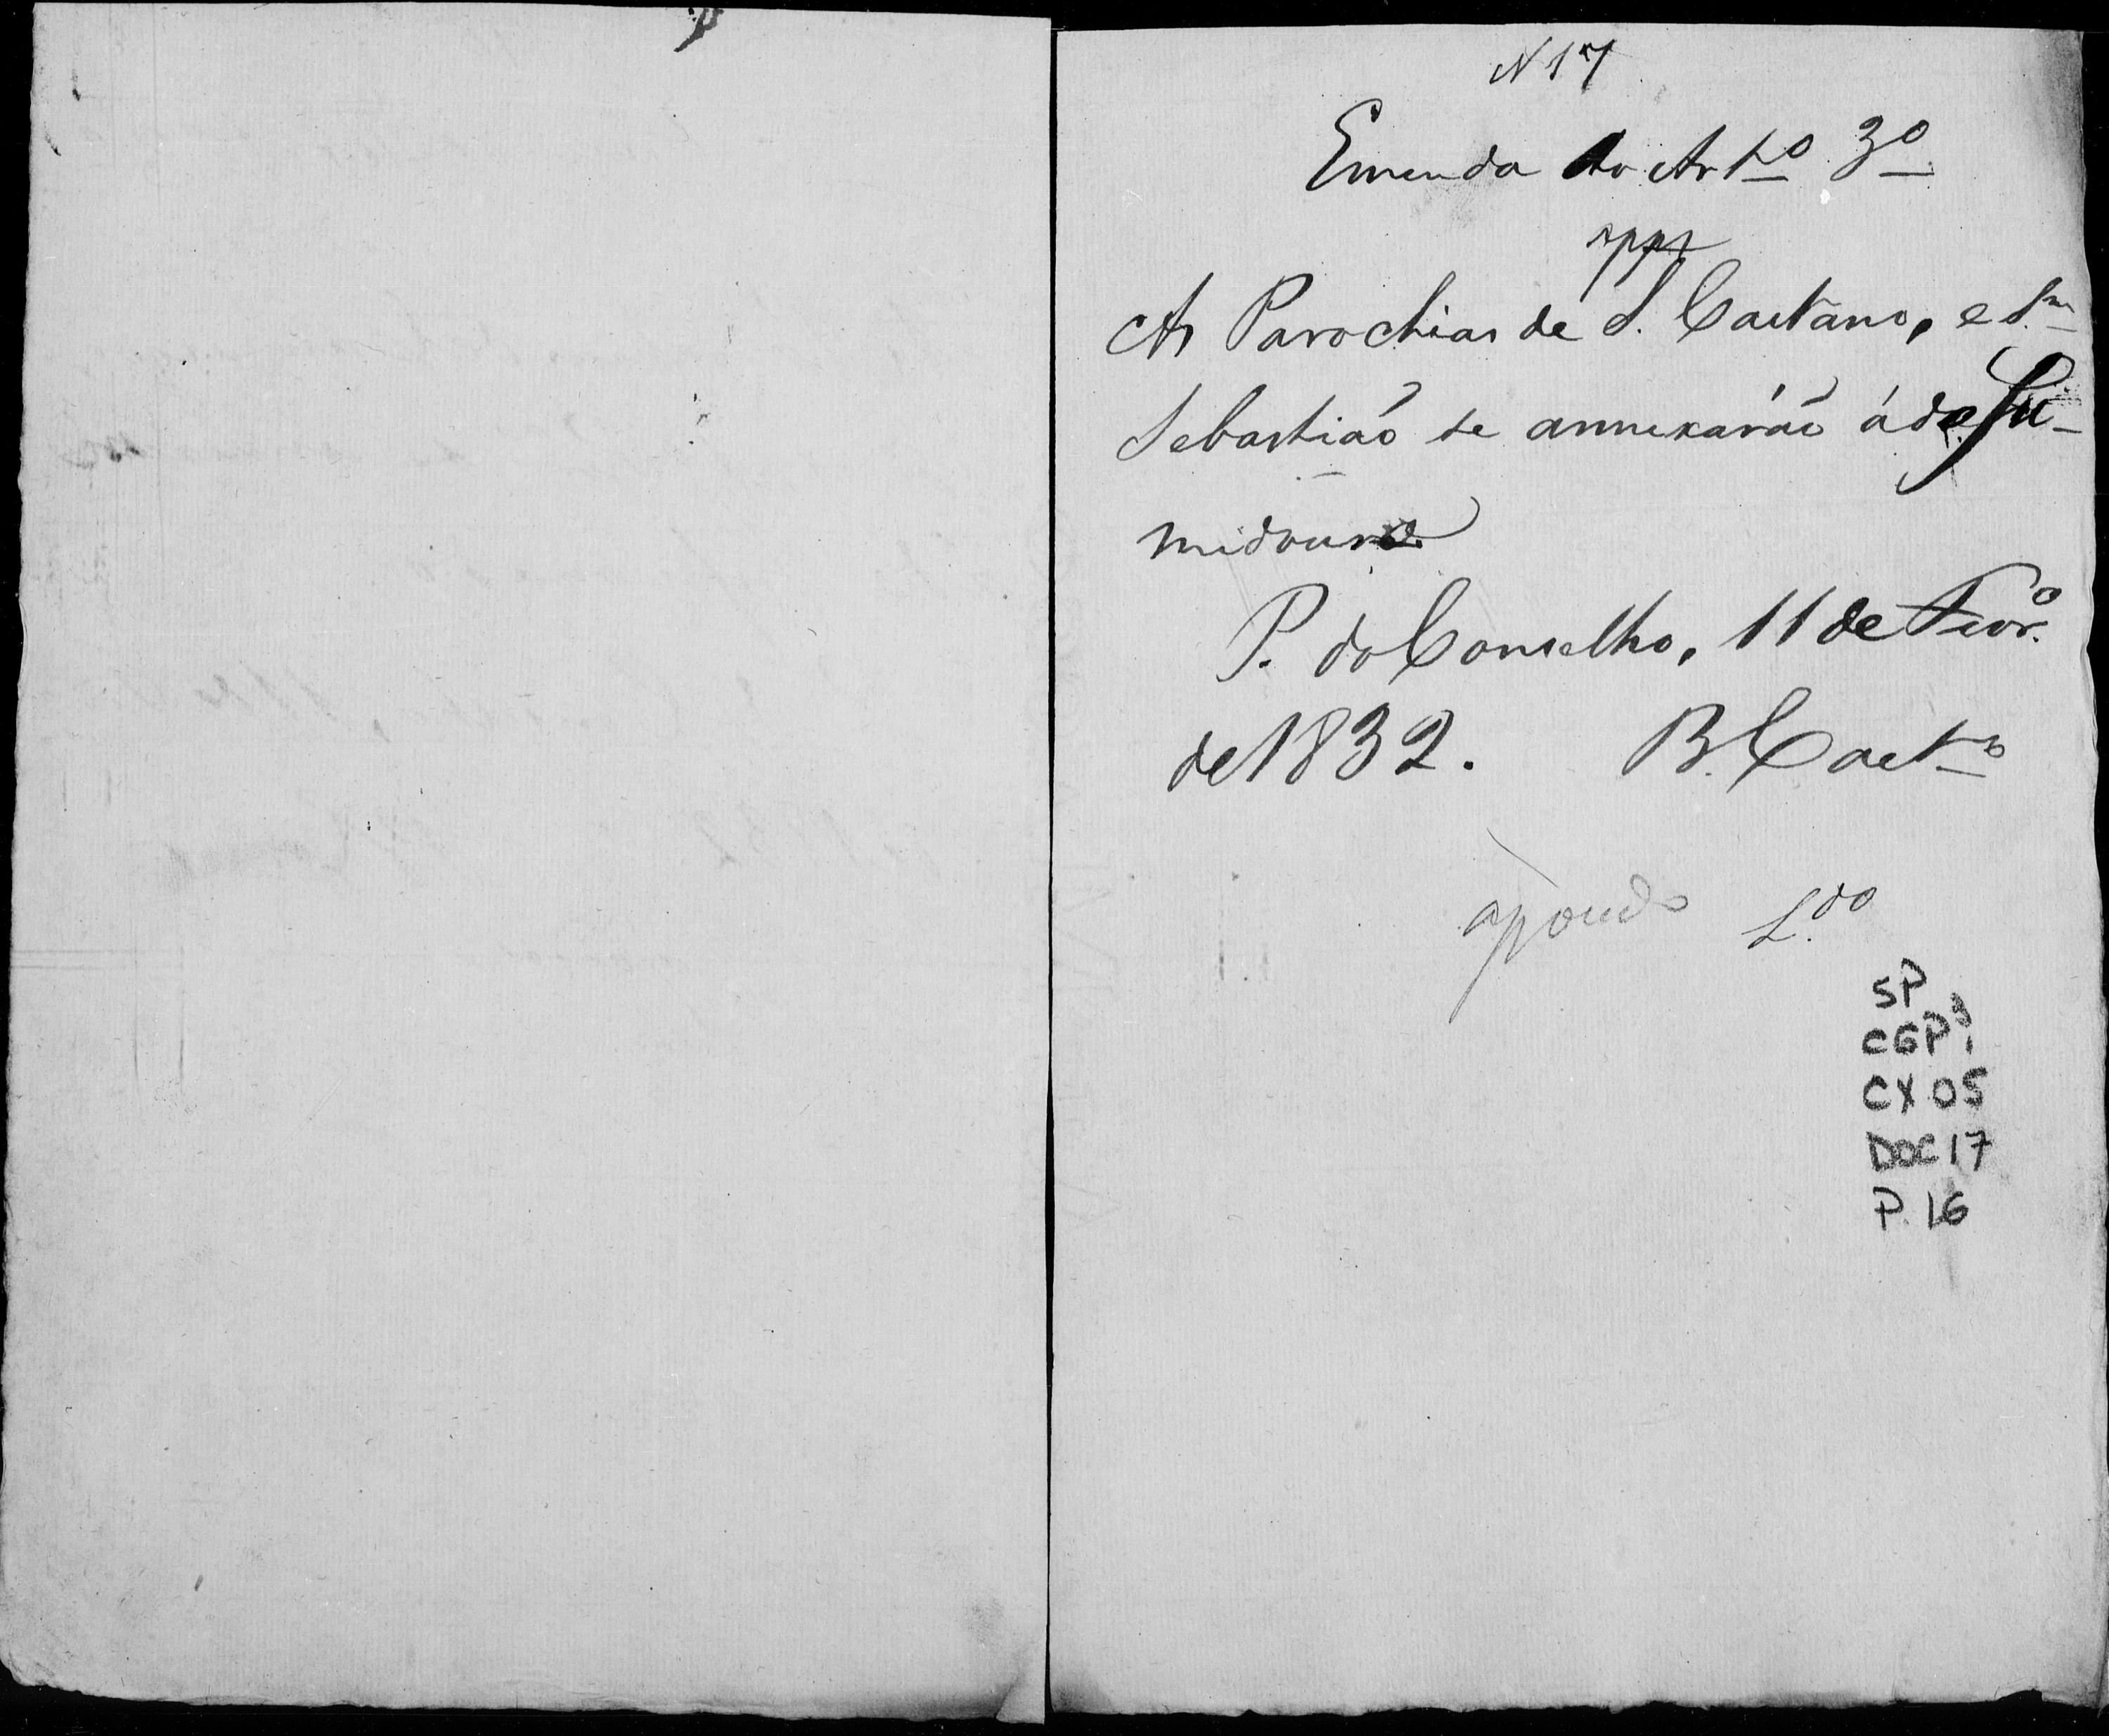 N 17
Emenda Ao Arto 3o
As Parochias de S. Caetano, e S.m
Sebastião se annexarão á do Su-
midouro
P. do Conselho, 11 de Fevr.o
de 1832. B. Caeto
apoiado L.do
SP
CGP1
CX 05
DOC 17
P. 16